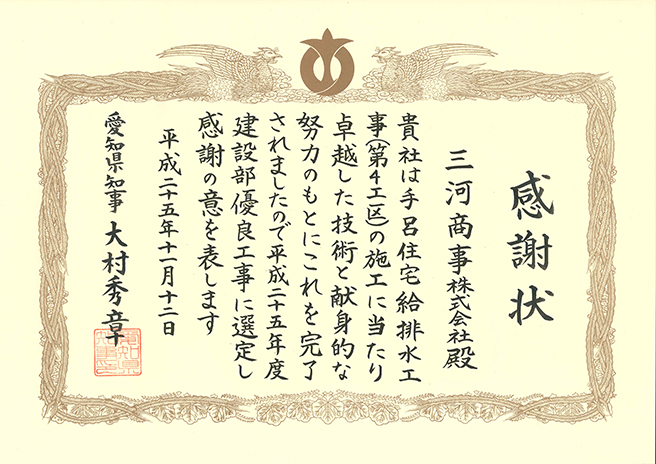 感謝状
三河商事株式会社殿
貴社は手呂住宅給排水工
事(第4工区)の施工に当たり
卓越した技術と献身的な
努力のもとにこれを完了
されましたので平成二十五年度
建設部優良工事に選定し
感謝の意を表します
平成二十五年十一月十二日
愛知県知事 大村秀章